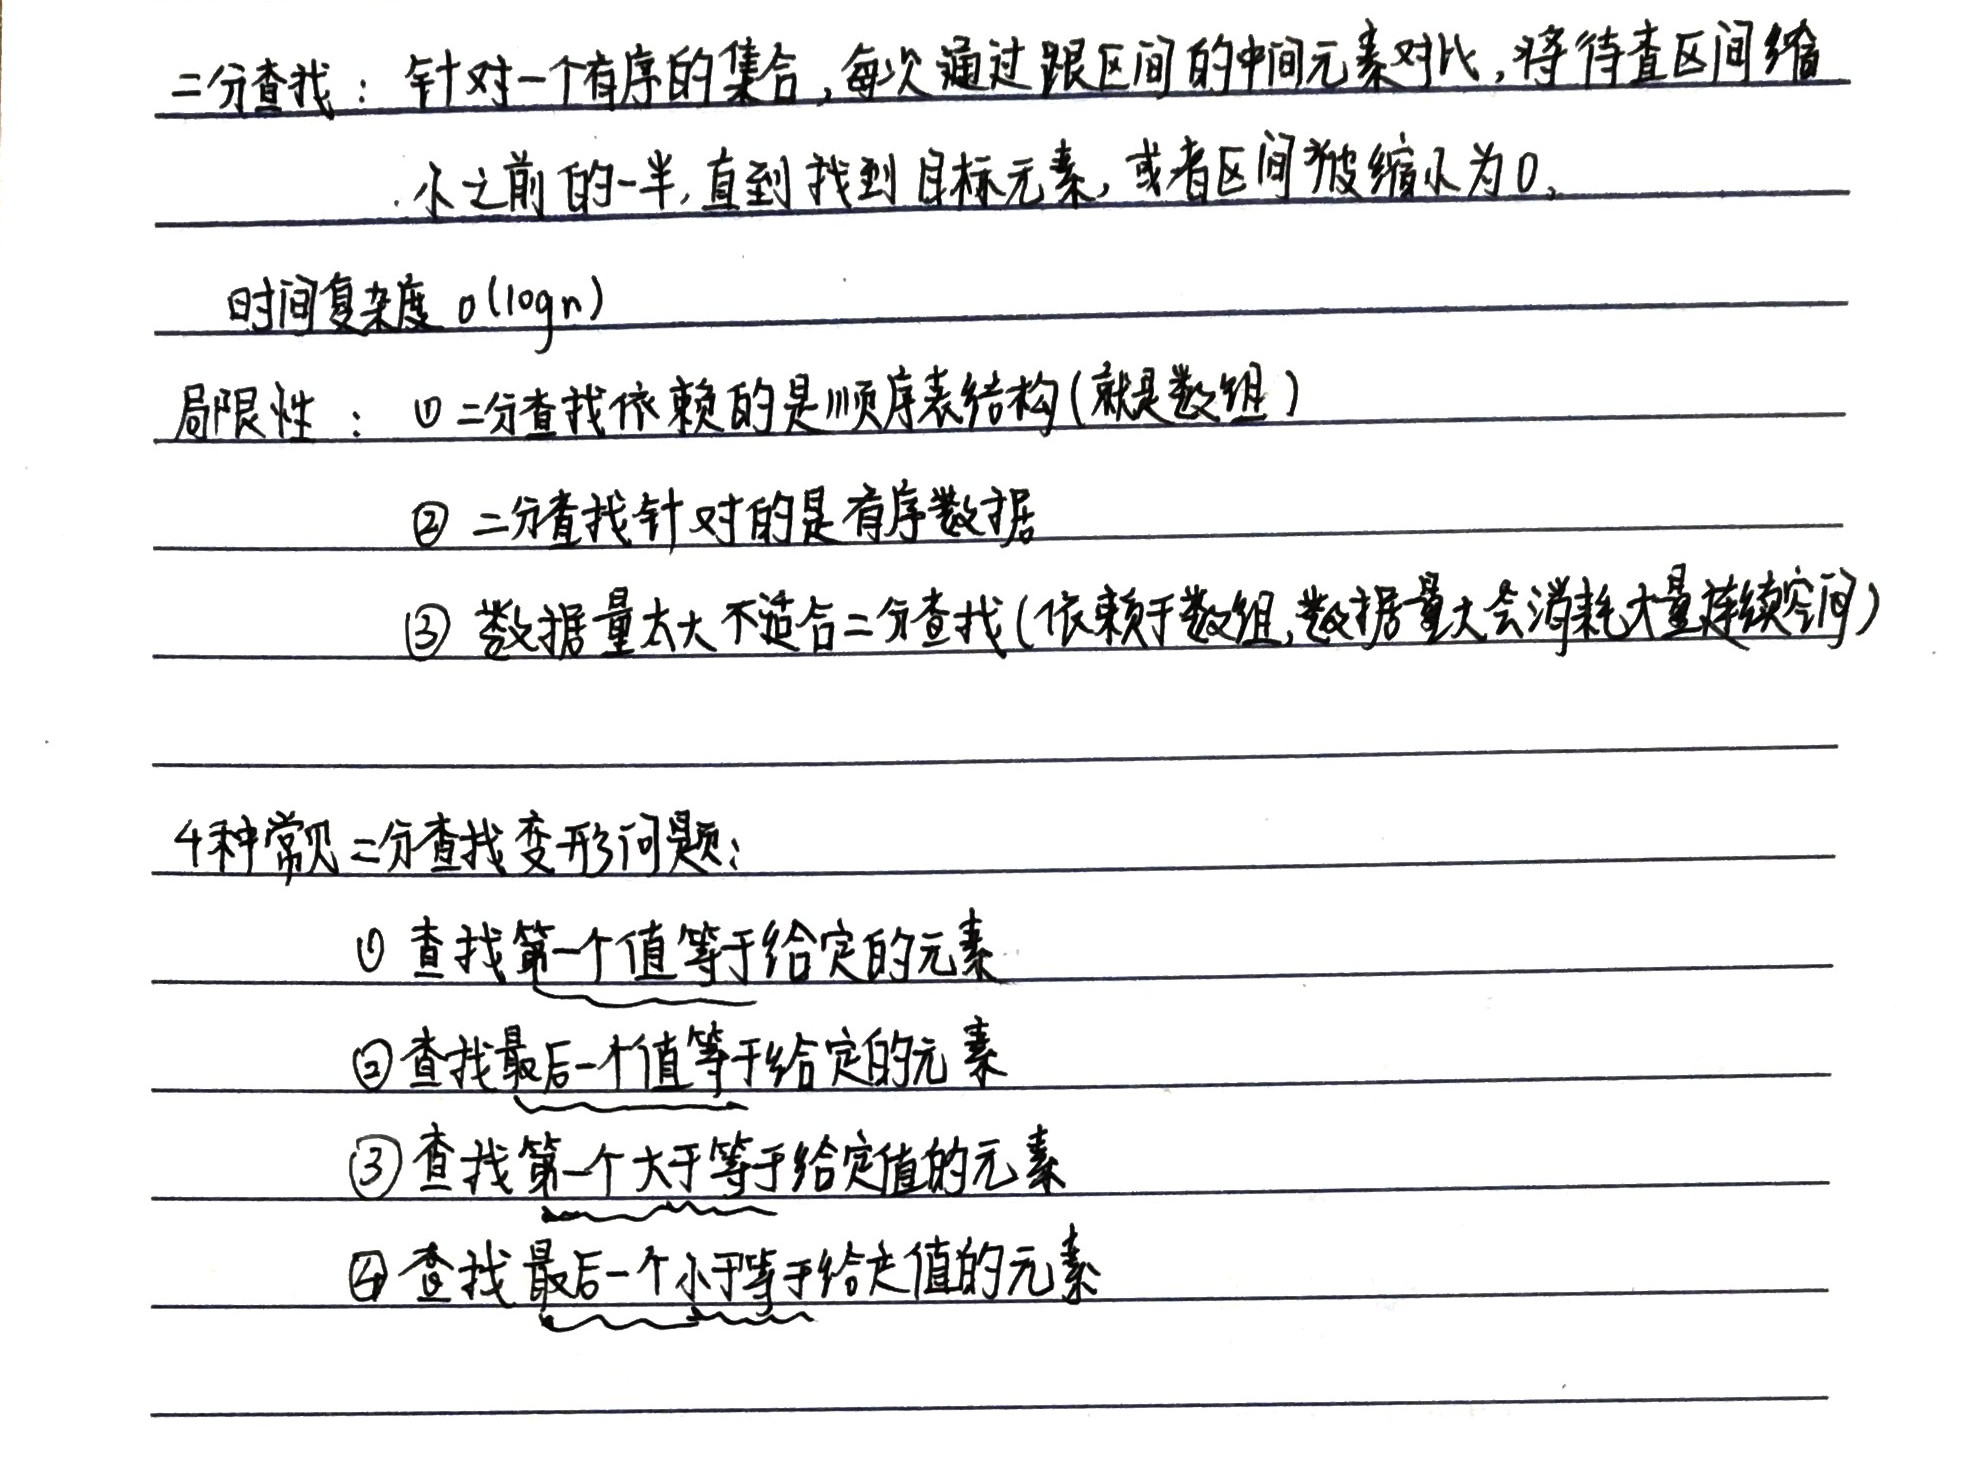 二分查找：针对一个有序的集合,每次通过跟区间的中间元素对比,将待查区间缩
小之前的一半,直到找到目标元素,或者区间被缩小为0。
时间复杂度 o(logn)
局限性：①二分查找依赖的是顺序表结构(就是数组)
② 二分查找针对的是有序数据
③ 数据量太大不适合二分查找(依赖于数组,数据量大会消耗大量连续空间)
4种常见二分查找变形问题：
① 查找第一个值等于给定的元素
②查找最后一个值等于给定的元素
③查找第一个大于等于给定值的元素
④查找最后一个小于等于给定值的元素